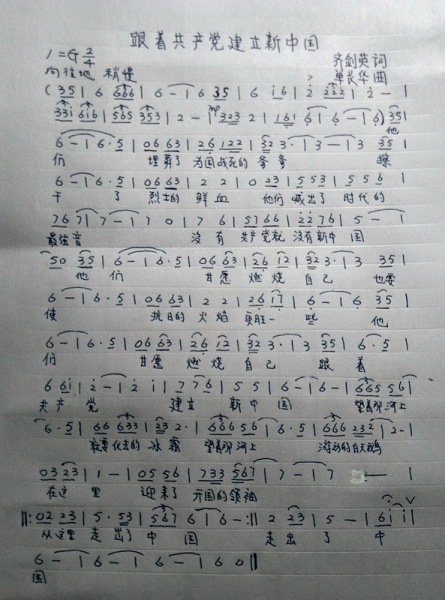 跟着共产党建立新中国
1=G 2/4 齐剑英词
向往地 稍慢 单长华曲
(35|6 666|6-|6 35|6 i6|2 222|2-|
331 616|565 353|2-|323 2|161|6 6|6-6) 35|
他
6-|6·5|06 63|26 122|323·|3-|3 35|
们 埋葬了 为国战死的 爹爹
6-|6·5|06 63|2 2|0 23|553|556|
干了 烈士的 鲜血 他们 喊出了 时代的
76 7|7-|7 0|7 6|57 66|22 76|5-|
最强音 没有 共产党就 没有新中国
50 35|6-|6·5|06 63|26 12|323·|3 35|
他们 甘愿 燃烧 自己 也要
6-|6·5|06 63|2 2|26 17|6-|6 35|
使 抗日的 火焰 一些 他
6-|6·5|06 63|26 12|323·|3 35|
们 甘愿 燃烧 自己 跟着
6 6i|2-|2 i|7 76|5 5|6-|6-|66 55 6|
共产党 建立 新中国 望着那 河上
6·5|66 633|23 2·|666 56|6·5|666 232|2-|
就要化去的 冰霜 望着那河上 游动的白天鹅
03 23|1-|05 56|733 567|7-|7 |
在这里 迎来了 开国的领袖
||:02 23|5·53|567|6 6|6-:||2 23|5-|6 i i|
从这里 走出了 中国 走出了 中
6-|6-|6-|6 0||
国